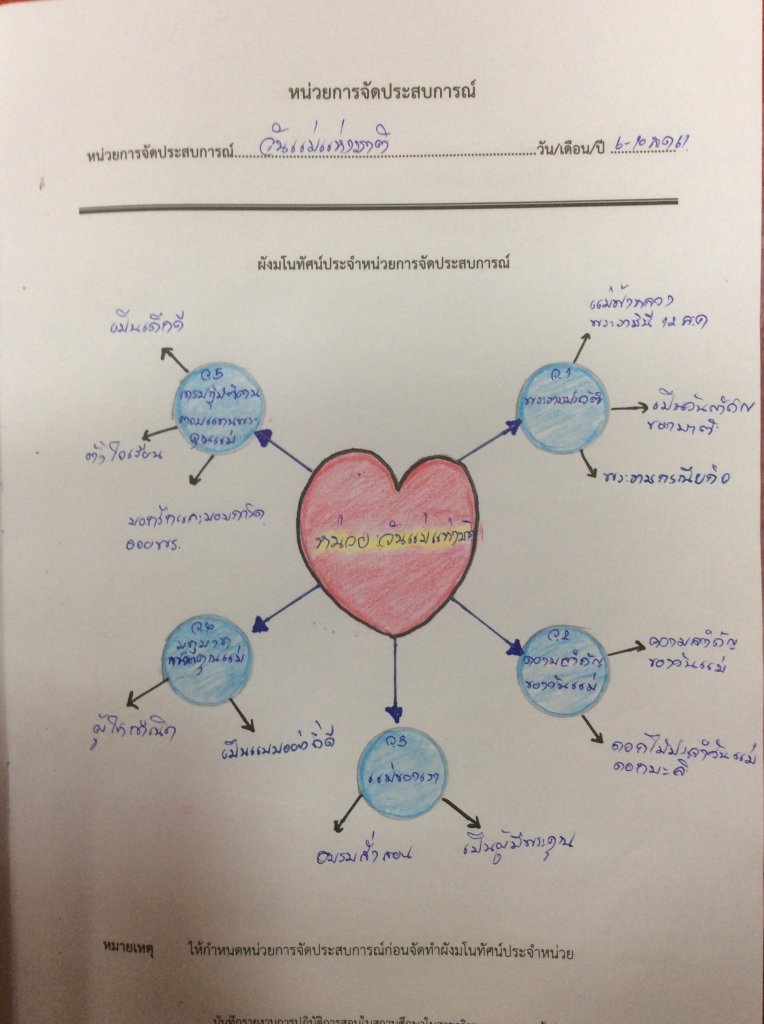 หน่วยการจัดประสบการณ์
หน่วยการจัดประสบการณ์ วันแม่แห่งชาติ วัน/เดือน/ปี 6-10 ส.ค 61
ผังมโนทัศน์ประจำหน่วยการจัดประสบการณ์
หน่วย : วันแม่แห่งชาติ
จ.1
พระราชประวัติ
แม่ฟ้าหลวง
พระราชินี 12 ส.ค
เป็นวันสำคัญ
ของชาติ
พระราชกรณียกิจ
อ.2
ความสำคัญ
ของวันแม่
ความสำคัญ
ของวันแม่
ดอกไม้ประจำวันแม่
ดอกมะลิ
อ.3
แม่ของเรา
เป็นผู้มีพระคุณ
อบรมสั่งสอน
อ.4
คุณแม่
เป็นแบบอย่างที่ดี
ผู้ให้กำเนิด
อ.5
การปฏิบัติตน
ตอบแทนพระ
คุณแม่
เป็นเด็กดี
ตั้งใจเรียน
หมายเหตุ ให้กำหนดหน่วยการจัดประสบการณ์ก่อนจัดทำผังมโนทัศน์ประจำหน่วย